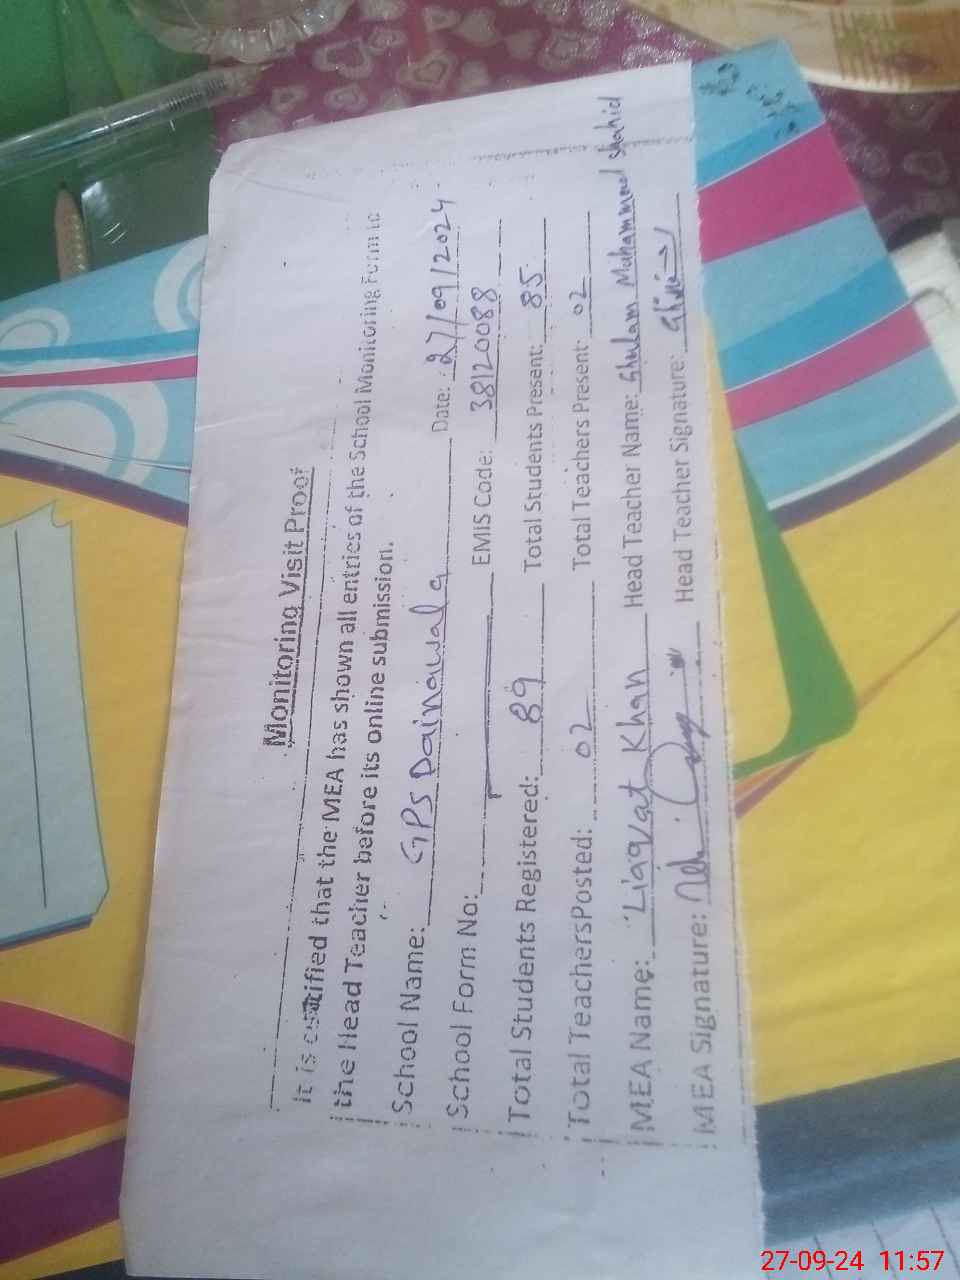 Monitoring Visit Proof
It is certified that the MEA has shown all entries of the School Monitoring Form to
the Head Teacher before its online submission.
School Name: GPS Dainawala Date: 27/09/2024
School Form No: EMIS Code: 38120088
Total Students Registered: 89 Total Students Present: 85
Total Teachers Posted: 02 Total Teachers Present: 02
MEA Name: Liaqat Khan Head Teacher Name: Ghulam Muhammad Shahid
MEA Signature: Head Teacher Signature:
27-09-24 11:57